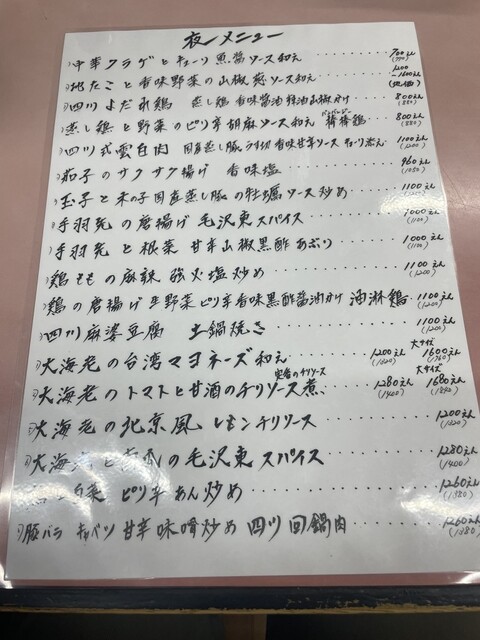 夜メニュー
中華クラゲとキューリ魚醤ソース和え 700えん (770)
地たこと香味野菜の山椒葱ソース和え 1200 ~1600えん
四川よだれ鶏 蒸し鶏 香味醤油 辣油山椒かけ 800えん (880)
蒸し鶏と野菜のピリ辛胡麻ソース和え 棒棒鶏 800えん (880)
四川式雲白肉 国産蒸し豚 うす切 香味甘辛ソース キューリ添え 1100えん (1200)
茄子のサクサク揚げ 香味塩 960えん (1050)
玉子と木の子国産蒸し豚の牡蠣ソース炒め 1100えん
手羽先の唐揚げ 毛沢東スパイス 1000えん (1100)
手羽先と根菜 甘辛山椒黒酢あぶり 1000えん (1100)
鶏ももの麻辣 強火塩炒め 1100えん (1200)
鶏の唐揚げ 生野菜ピリ辛香味黒酢醤油かけ 油淋鶏 1100えん (1200)
四川麻婆豆腐 土鍋焼き 1100えん (1200)
大海老の台湾マヨネーズ和え 1200えん (1320) 大サイズ 1600えん (1760)
大海老のトマトと甘酒のチリソース煮 定番のチリソース 1280えん (1400) 大サイズ 1680えん
大海老の北京風 レモンチリソース 1200えん (1320)
大海老と の毛沢東スパイス 1280えん (1400)
白菜 ピリ辛あん炒め 1260えん (1380)
豚バラ キャベツ 甘辛味噌炒め 四川回鍋肉 1260えん (1380)